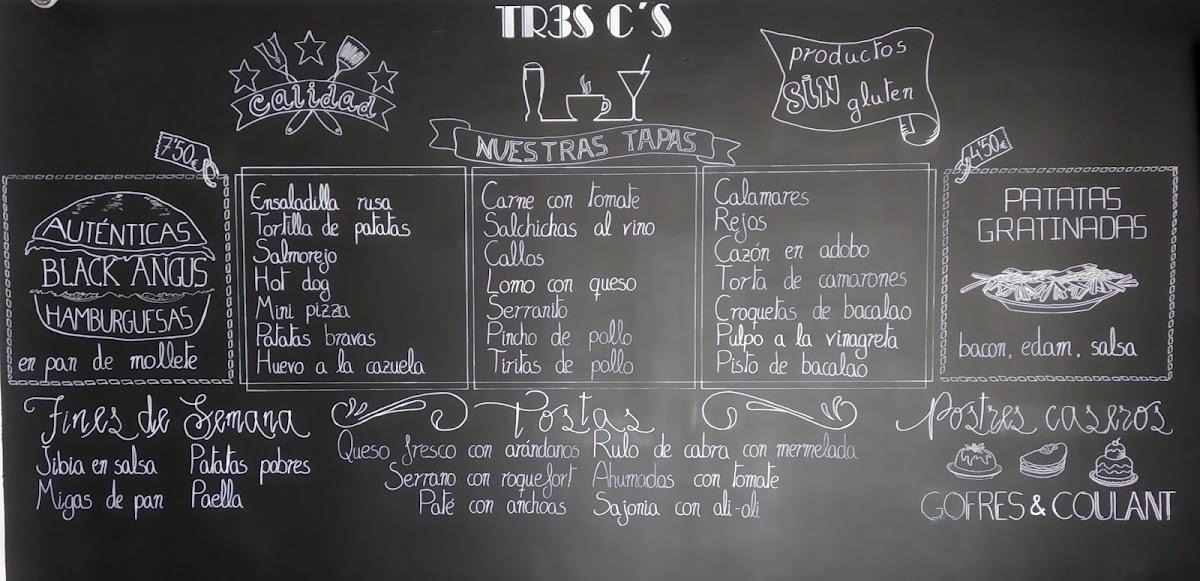 TR3S C´S
calidad
productos
SIN gluten
NUESTRAS TAPAS
7'50€
AUTÉNTICAS
BLACK ANGUS
HAMBURGUESAS
en pan de mollete
Ensaladilla rusa
Tortilla de patatas
Salmorejo
Hot dog
Mini pizza
Patatas bravas
Huevo a la cazuela
Carne con tomate
Salchichas al vino
Callos
Lomo con queso
Serranito
Pincho de pollo
Tiritas de pollo
Calamares
Rejos
Cazón en adobo
Torta de camarones
Croquetas de bacalao
Pulpo a la vinagreta
Pisto de bacalao
4'50€
PATATAS
GRATINADAS
bacon, edam, salsa
Fines de Semana
Jibia en salsa Patatas pobres
Migas de pan Paella
Tostas
Queso fresco con arándanos Rulo de cabra con mermelada
Serrano con roquefort Ahumadas con tomate
Paté con anchoas Sajonia con ali-oli
Postres caseros
GOFRES & COULANT